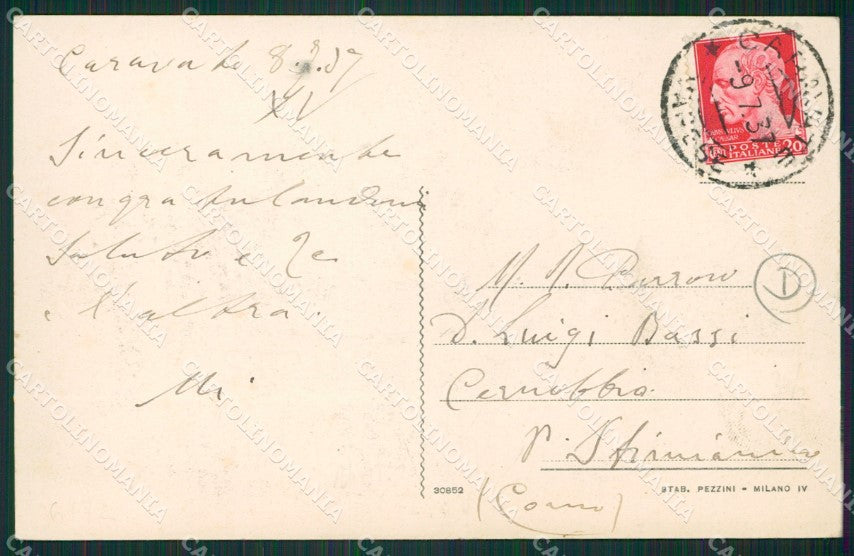 Caravate 8.7.37
XV
Sinceramente
congratulandomi
saluto e Te
e l'altra.
M. R. Parroco
D. Luigi Bassi
Cernobbio
p.
(Como)
CARAVATE
-9.7.37
(VARESE)
POSTE
ITALIANE
20
T
30852
STAB. PEZZINI - MILANO IV
CARTOLINOMANIA